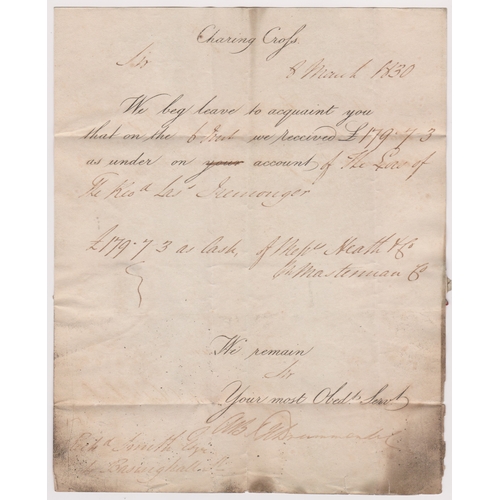 Charing Cross.
Sir
8 March 1830
We beg leave to acquaint you
that on the 6 Inst we received £179.7.3
as under on your account of The Exors of
The Revd Las Iremonger
£179.7 3 as Cash, of Messrs Heath & Co
Masterman & Co
We remain
Sir
Your most Obedt. Servt
Drummond
Smith Esqr
Basinghall St